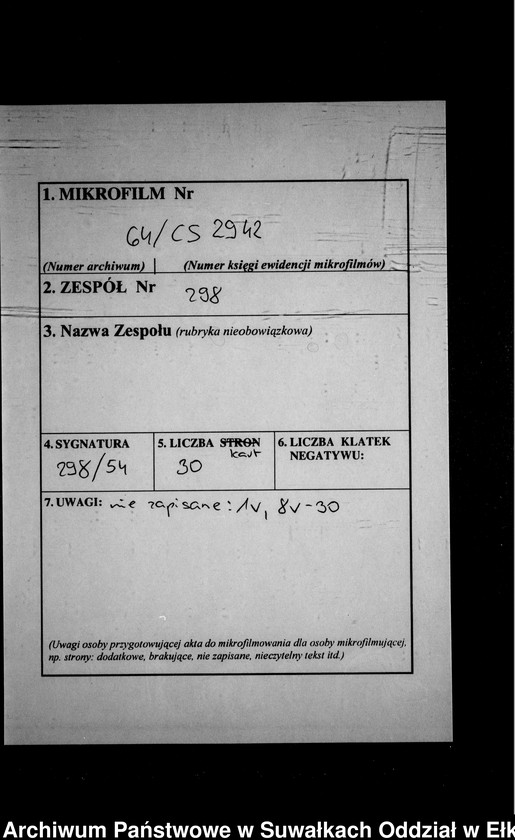 1. MIKROFILM Nr
64/CS 2942
(Numer archiwum) | (Numer księgi ewidencji mikrofilmów)
2. ZESPÓŁ Nr 298
3. Nazwa Zespołu (rubryka nieobowiązkowa)
4. SYGNATURA
298/54
5. LICZBA STRON
kart
30
6. LICZBA KLATEK
NEGATYWU:
7. UWAGI: nie zapisane: 1v, 8v-30
(Uwagi osoby przygotowującej akta do mikrofilmowania dla osoby mikrofilmującej.
np. strony: dodatkowe, brakujące, nie zapisane, nieczytelny tekst itd.)
Archiwum Państwowe w Suwałkach Oddział w Ełk